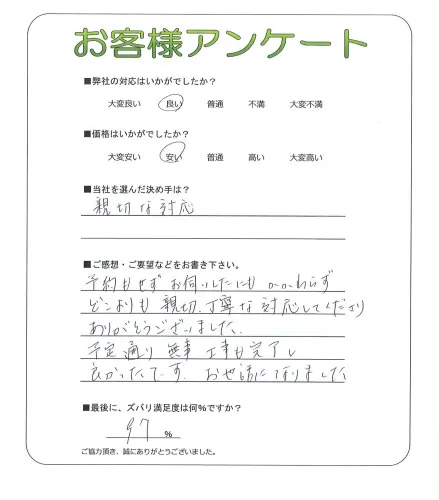 お客様アンケート
■弊社の対応はいかがでしたか？
大変良い 良い 普通 不満 大変不満
■価格はいかがでしたか？
大変安い 安い 普通 高い 大変高い
■当社を選んだ決め手は？
親切な対応
■ご感想・ご要望などをお書き下さい。
予約もせずお伺いしたにもかかわらず
どこよりも親切、丁寧な対応してくださり
ありがとうございました。
予定通り無事工事も完了し
良かったです。お世話になりました
■最後に、ズバリ満足度は何%ですか？
97 %
ご協力頂き、誠にありがとうございました。